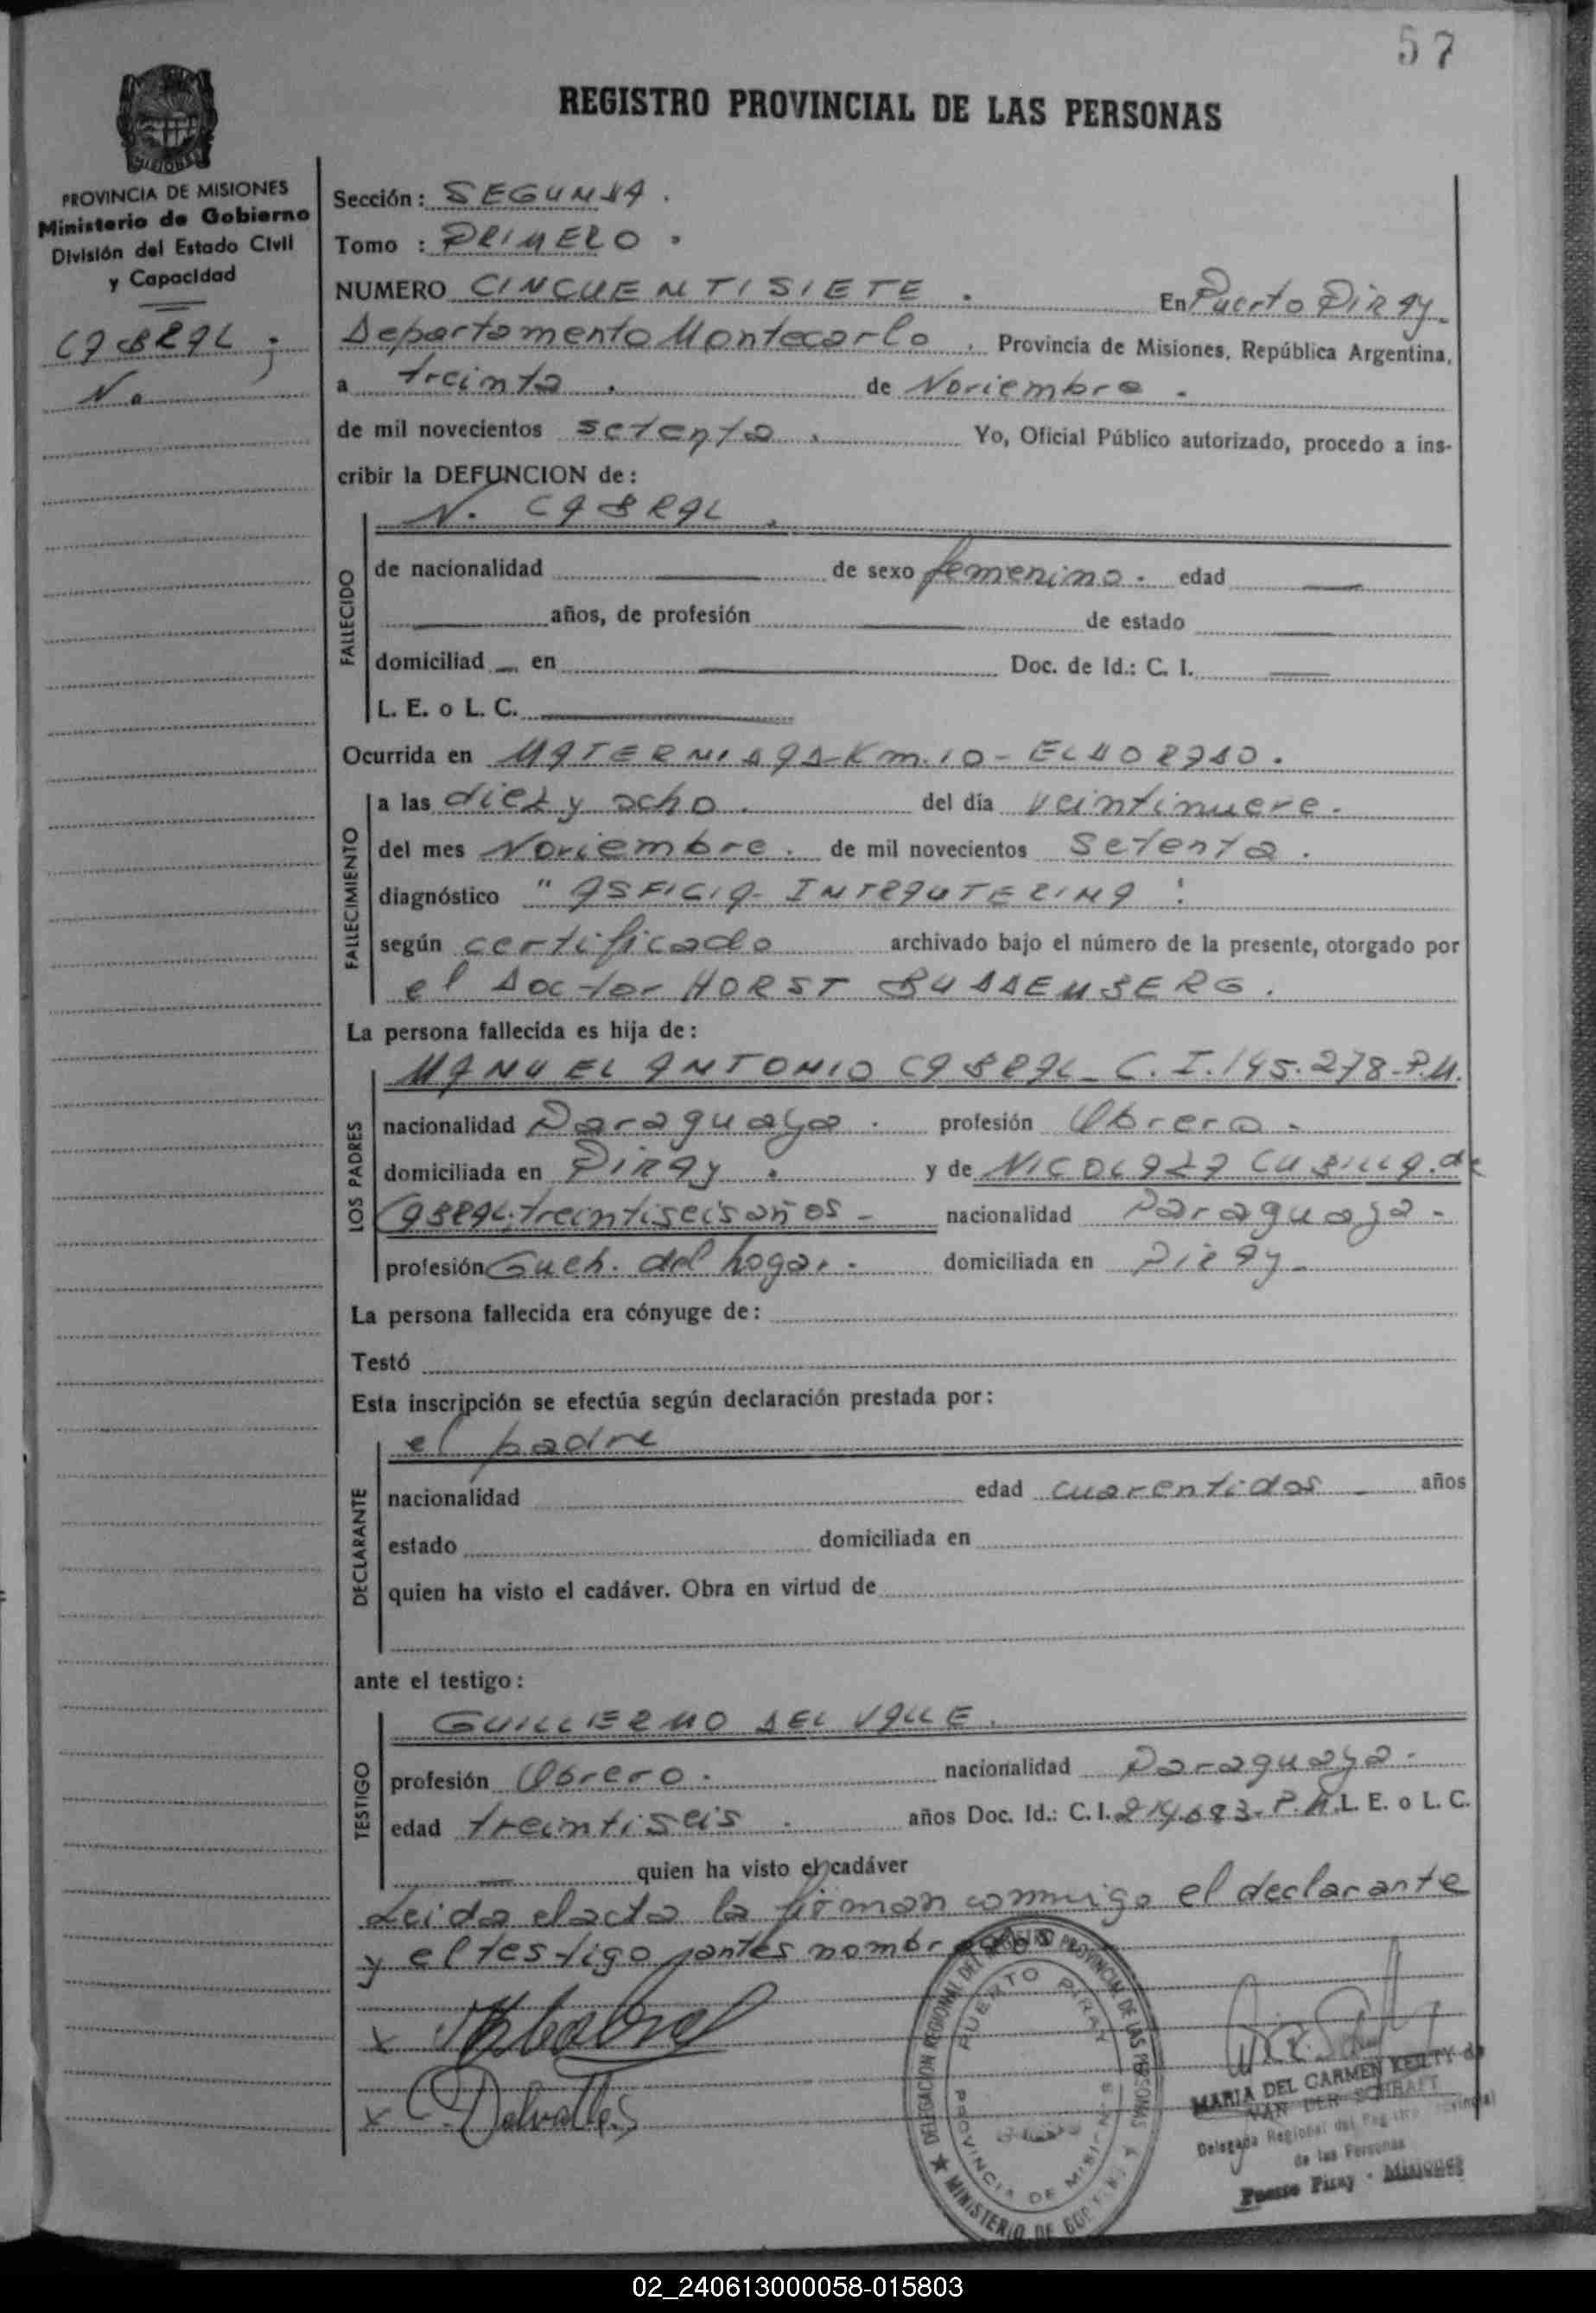 57
REGISTRO PROVINCIAL DE LAS PERSONAS
MISIONES
PROVINCIA DE MISIONES
Ministerio de Gobierno
División del Estado Civil
y Capacidad
CABRAL
N.
Sección: SEGUNDA.
Tomo : PRIMERO.
NUMERO CINCUENTISIETE. En Puerto PIRAY.
Departamento Montecarlo, Provincia de Misiones, República Argentina,
a treinta. de Noviembre.
de mil novecientos setenta. Yo, Oficial Público autorizado, procedo a ins-
cribir la DEFUNCION de:
N. CABRAL.
FALLECIDO
de nacionalidad de sexo femenino. edad
años, de profesión de estado
domiciliad en Doc. de Id.: C. I.
L. E. o L. C.
Ocurrida en MATERNIDAD-Km.10-ELDORADO.
FALLECIMIENTO
a las diez y ocho. del día veintinueve.
del mes Noviembre. de mil novecientos setenta.
diagnóstico "ASFICIA INTRAUTERINA".
según certificado archivado bajo el número de la presente, otorgado por
el Doctor HORST BUDDENBERG.
La persona fallecida es hija de:
LOS PADRES
MANUEL ANTONIO CABRAL C.I.145.278-P.M.
nacionalidad Paraguaya. profesión Obrero.
domiciliada en PIRAY. y de NICOLAZA CUBILLA de
CABRAL. treintiseis años - nacionalidad Paraguaya.
profesión Queh. del hogar. domiciliada en PIRAY.
La persona fallecida era cónyuge de:
Testó
Esta inscripción se efectúa según declaración prestada por:
DECLARANTE
el padre
nacionalidad edad cuarentidos años
estado domiciliada en
quien ha visto el cadáver. Obra en virtud de
ante el testigo:
TESTIGO
GUILLERMO DEL VALLE.
profesión Obrero. nacionalidad Paraguaya.
edad treintiseis. años Doc. Id.: C. I. 214.683-P.M. L. E. o L. C.
quien ha visto el cadáver
Leida el acta la firman conmigo el declarante
y el testigo antes nombrados
x Cabral
x Delvalle
DELEGACION REGIONAL DEL REGISTRO PROVINCIAL DE LAS PERSONAS
PUERTO PIRAY
PROVINCIA DE MISIONES
MINISTERIO DE GOB
MARIA DEL CARMEN de
VAN DER SCHRAFT
Delegada Regional del Registro Provincial
de las Personas
Puerto Piray - Misiones
02_240613000058-015803